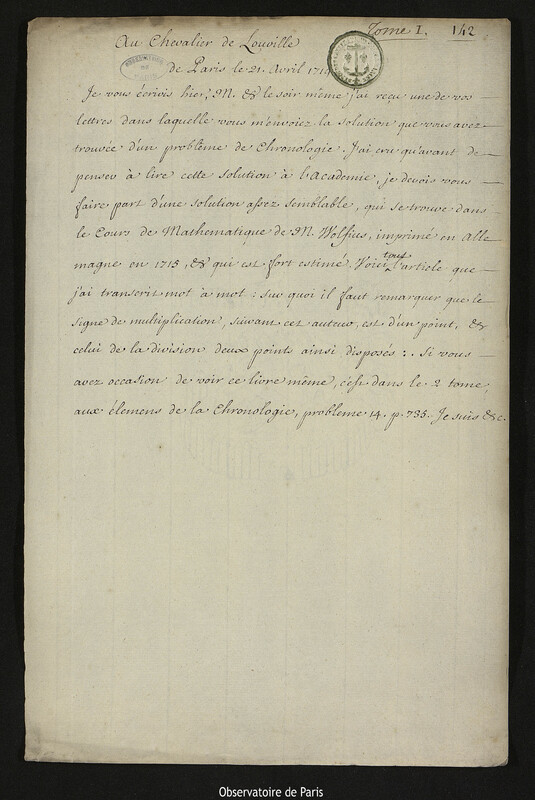 Tome I. 142
Au Chevalier de Louville
de Paris le 21. Avril 1719
OBSERVATOIRE DE PARIS
Je vous écrivis hier, M. & le soir même j'ai reçu une de vos
lettres dans laquelle vous m'envoiez la solution que vous avez
trouvée d'un problême de Chronologie. J'ai cru qu'avant de
penser à lire cette solution à l'Academie, je devois vous
faire part d'une solution assez semblable, qui se trouve dans
le Cours de Mathematique de M. Wolfius, imprimé en Alle
magne en 1715, & qui est fort estimé. Voici tout l'article que
j'ai transcrit mot à mot : sur quoi il faut remarquer que le
signe de multiplication, suivant cet auteur, est d'un point, &
celui de la division deux points ainsi disposés : . Si vous
avez occasion de voir ce livre même, c'est dans le 2 tome,
aux élemens de la Chronologie, problême 14. p. 735. Je suis &c.
Observatoire de Paris